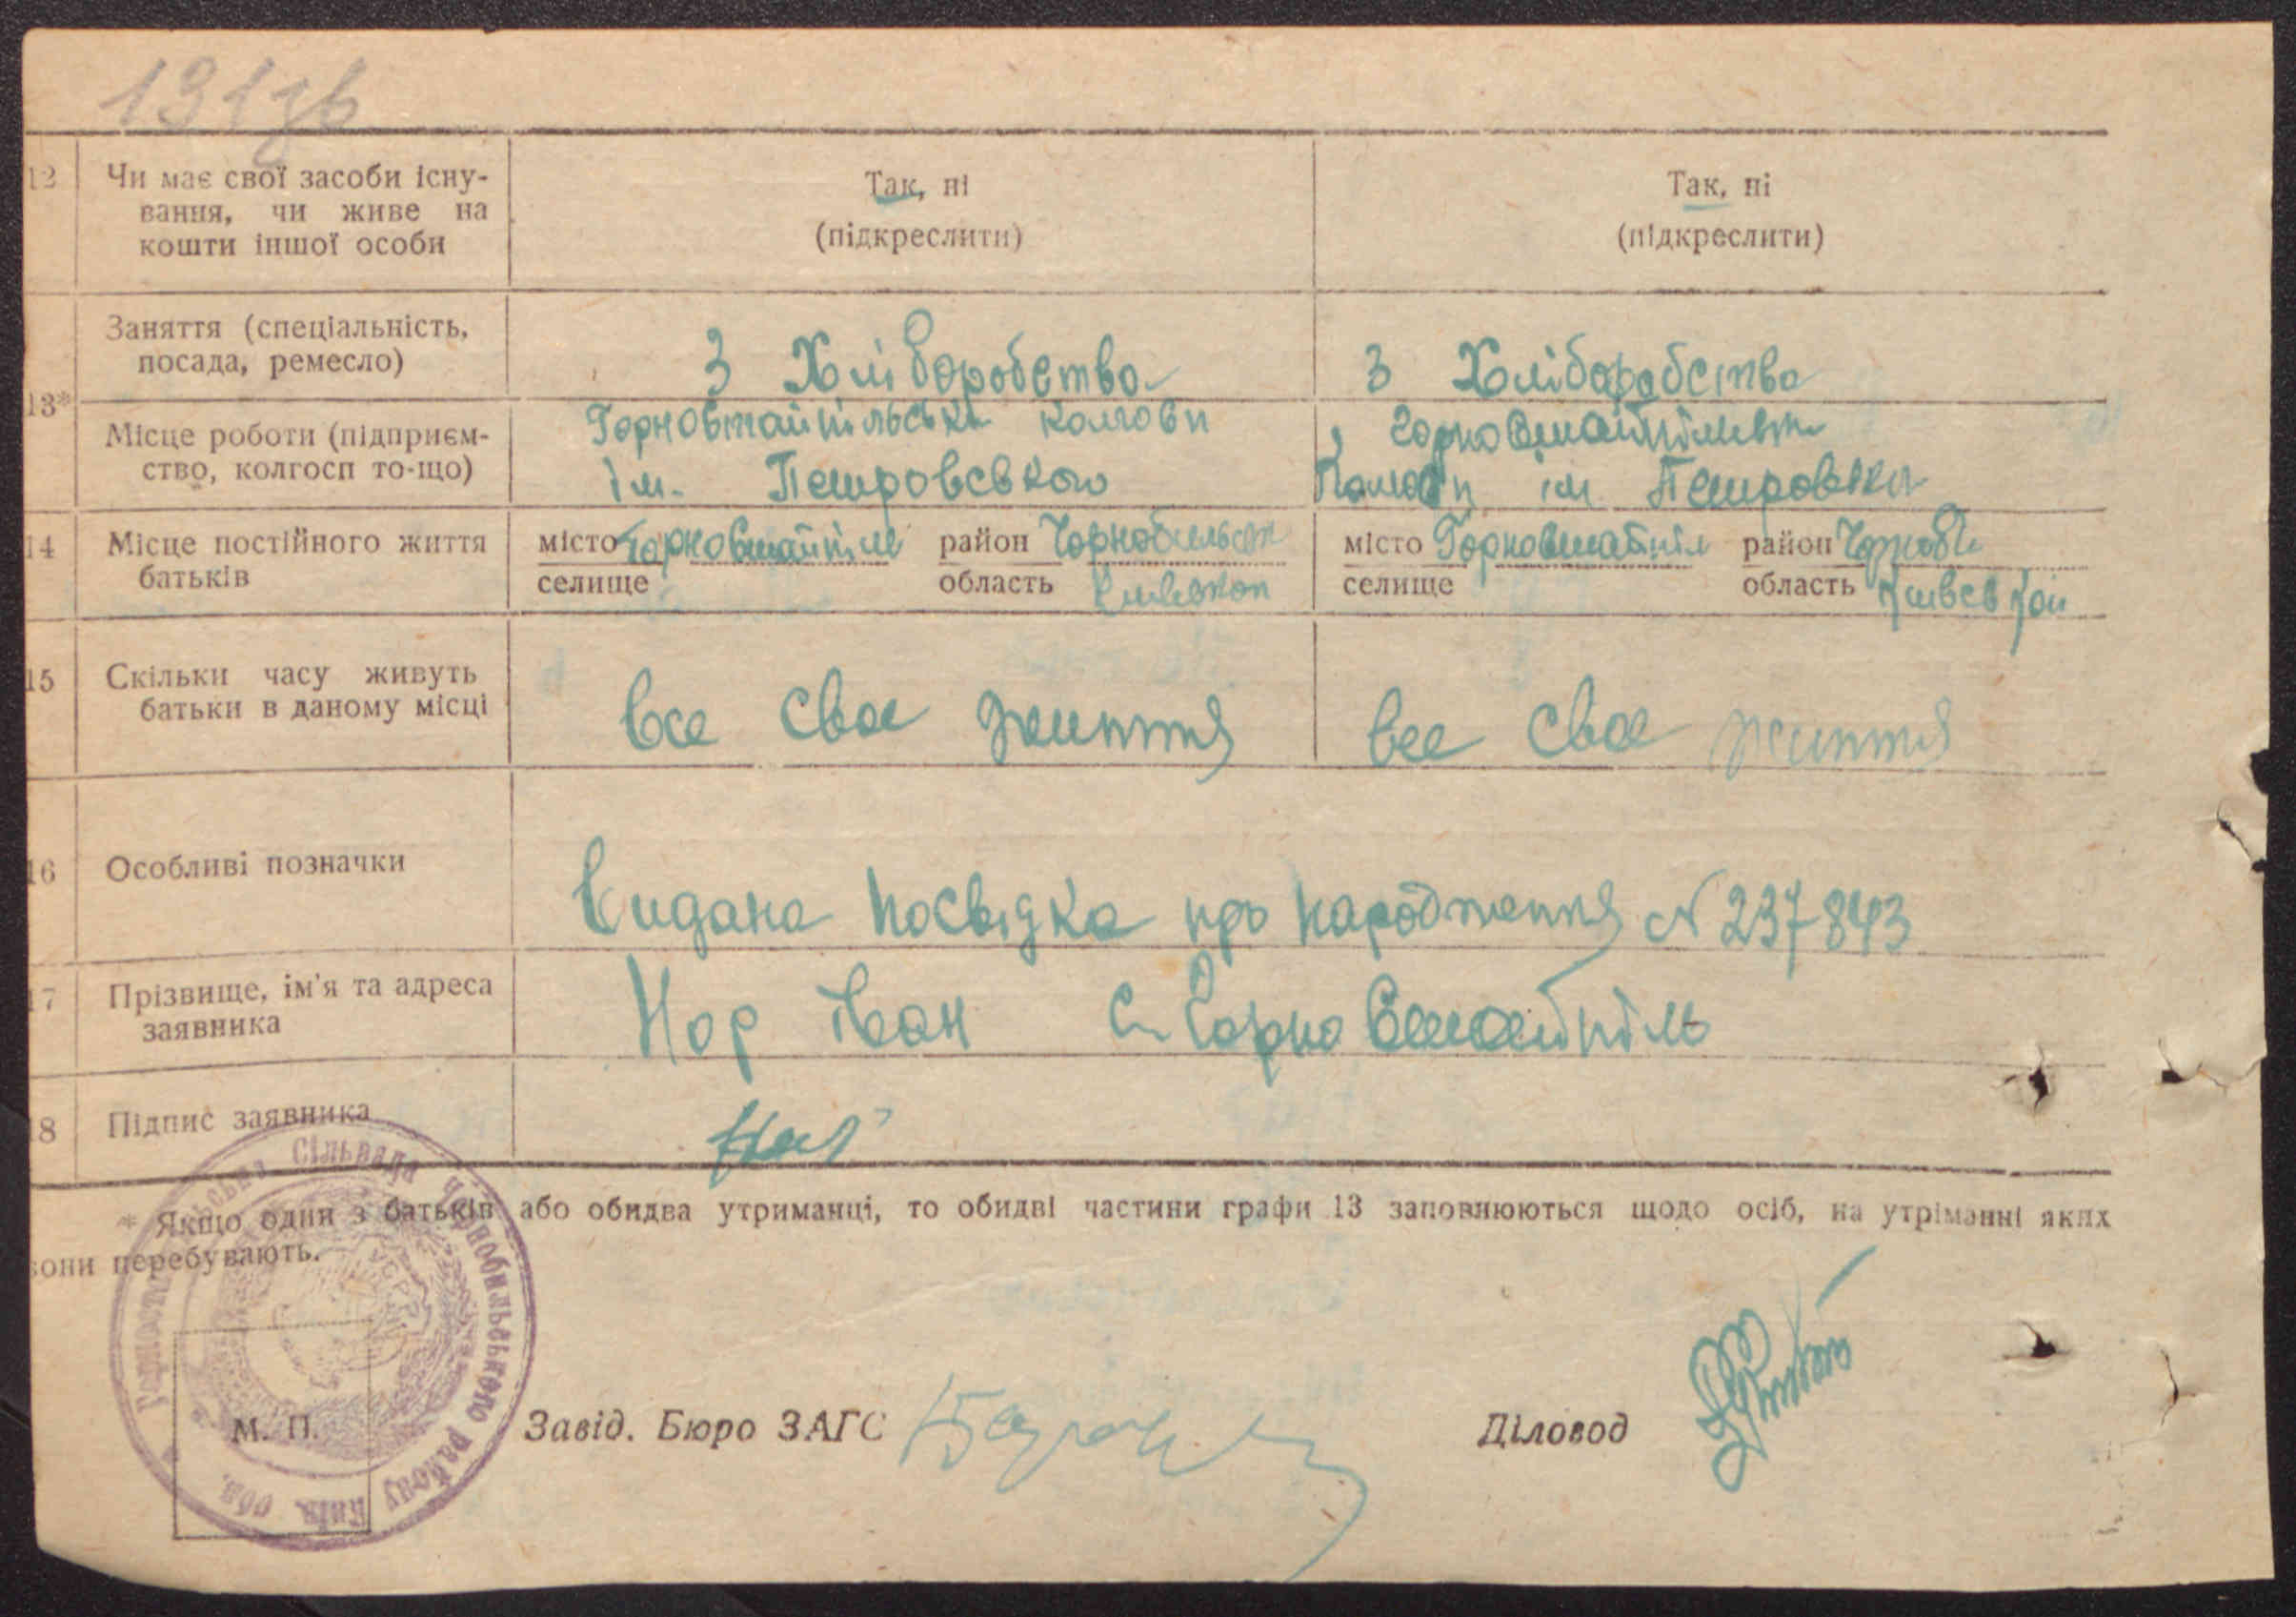 131зв
12 Чи має свої засоби існу-
вання, чи живе на
кошти іншої особи
Так, ні
(підкреслити)
Так, ні
(підкреслити)
13*
Заняття (спеціальність,
посада, ремесло)
З Хліборобства
З Хліборобства
Місце роботи (підприєм-
ство, колгосп то-що)
Горновстайпільськ
ім. Петровського
Горновстайпільськ
ім Петровськ
14 Місце постійного життя
батьків
місто Горностайпіль район Чорнобильськ
селище область Київської
місто Горновстайпіл район Чорноб
селище область Київської
15 Скільки часу живуть
батьки в даному місці
все своє життя
все своє життя
16 Особливі позначки
Видана посвідка про народження N 237843
17 Прізвище, ім'я та адреса
заявника
Нор Іван с. Горновстайпіль
18 Підпис заявника
Нор
* Якщо один з батьків або обидва утриманці, то обидві частини графи 13 заповнюються щодо осіб, на утріманні яких
вони перебувають.
Сільрада Чорнобильського району Київ. обл.
М. П.
Завід. Бюро ЗАГС
Діловод